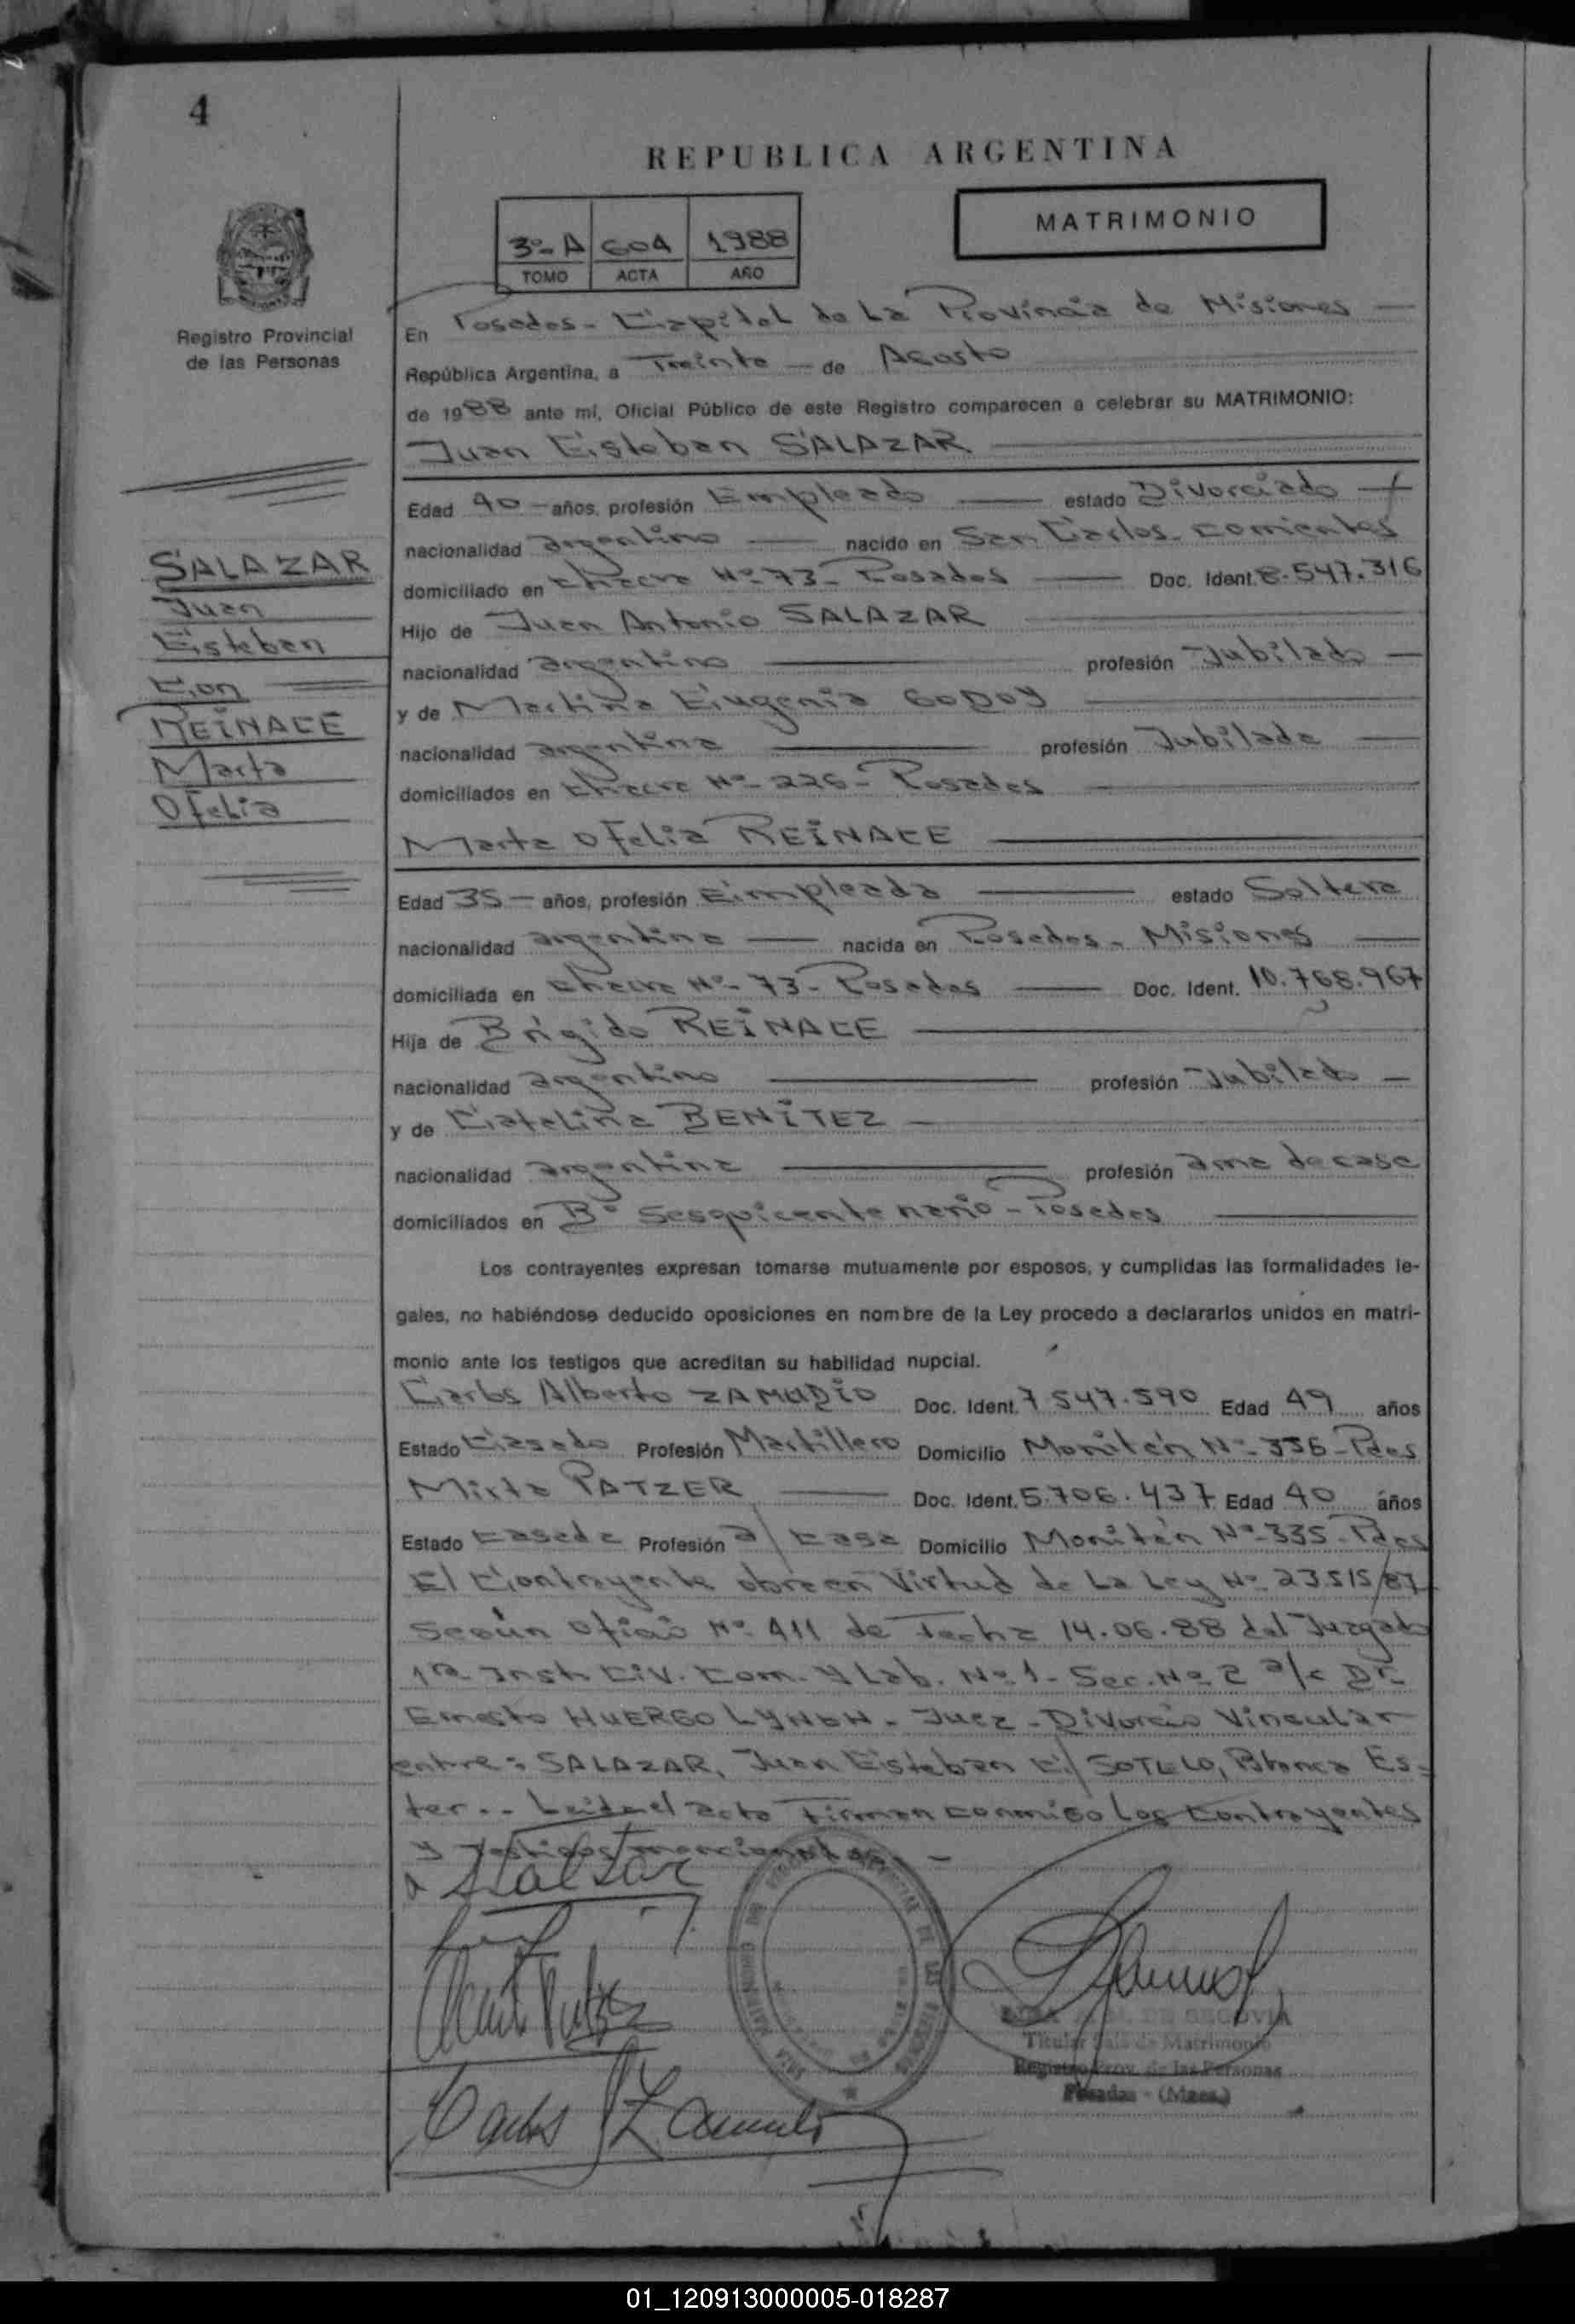 4
REPUBLICA ARGENTINA
MATRIMONIO
3º-A 604 1988
TOMO ACTA AÑO
Registro Provincial
de las Personas
En Posadas - Capital de La Provincia de Misiones —
República Argentina, a Treinta — de Agosto
de 1988 ante mí, Oficial Público de este Registro comparecen a celebrar su MATRIMONIO:
Juan Esteban SALAZAR
Edad 40 - años, profesión Empleado — estado Divorciado
nacionalidad argentino — nacido en San Carlos - Corrientes
domiciliado en Chacra Nº 73 - Posadas — Doc. Ident. 8.547.316
Hijo de Juan Antonio SALAZAR
nacionalidad argentino — profesión Jubilado —
y de Martina Eugenia GODOY
nacionalidad argentina — profesión Jubilada —
domiciliados en Chacra Nº 226 - Posadas —
SALAZAR
Juan
Esteban
Con
REINACE
Marta
Ofelia
Marta Ofelia REINACE
Edad 35 — años, profesión Empleada — estado Soltera
nacionalidad argentina — nacida en Posadas - Misiones —
domiciliada en Chacra Nº - 73 - Posadas — Doc. Ident. 10.768.967
Hija de Brígido REINACE
nacionalidad argentino — profesión Jubilado —
y de Catalina BENITEZ —
nacionalidad argentina — profesión ama de casa
domiciliados en Bº Sesquicentenario - Posadas
Los contrayentes expresan tomarse mutuamente por esposos, y cumplidas las formalidades le-
gales, no habiéndose deducido oposiciones en nombre de la Ley procedo a declararlos unidos en matri-
monio ante los testigos que acreditan su habilidad nupcial.
Carlos Alberto ZAMUDIO Doc. Ident. 7 547.590 Edad 49 años
Estado Casado Profesión Martillero Domicilio Nº 336 - Pdas
Mirta PATZER — Doc. Ident. 5.706.437 Edad 40 años
Estado Casada Profesión a/ Casa Domicilio Nº 335 - Pdas
El Contrayente obra en Virtud de La Ley Nº 23515/87
Según Oficio Nº 411 de Fecha 14.06.88 del Juzgado
1ra Inst. Civ. Com. y Lab. Nº 1 - Sec. Nº 2 a/c Dr.
Ernesto HUERGO - Juez - Divorcio Vincular
entre: SALAZAR, Juan Esteban C/ SOTELO, Blanca Es-
ter.. Leída el acta Firman conmigo Los contrayentes
y testigos mencionados. —
Salazar
Carlos Zamudio
DE SEGOVIA
Titular Sala de Matrimonio
Registro Prov. de las Personas
Posadas - (Mnes.)
01_120913000005-018287